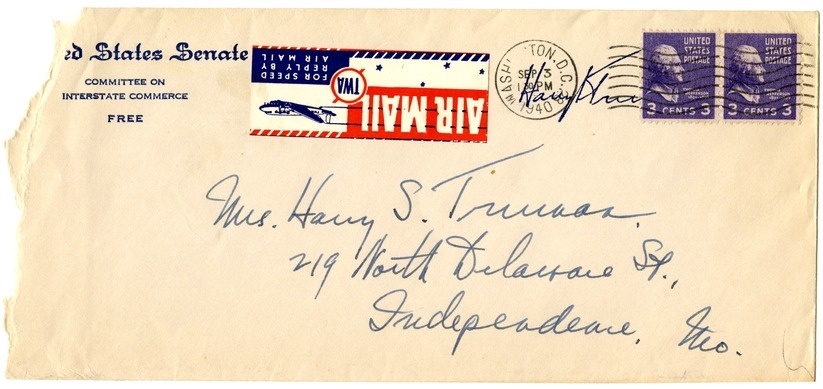 ed States Senate
COMMITTEE ON
INTERSTATE COMMERCE
FREE
FOR SPEED
REPLY BY
AIR MAIL
TWA
AIR MAIL
WASHINGTON, D.C.
SEP 3
1 30 PM
1940
Harry S Tru
UNITED
STATES
POSTAGE
3 CENTS 3
UNITED
STATES
POSTAGE
3 CENTS 3
Mrs. Harry S. Truman
219 North Delaware St.,
Independence, Mo.